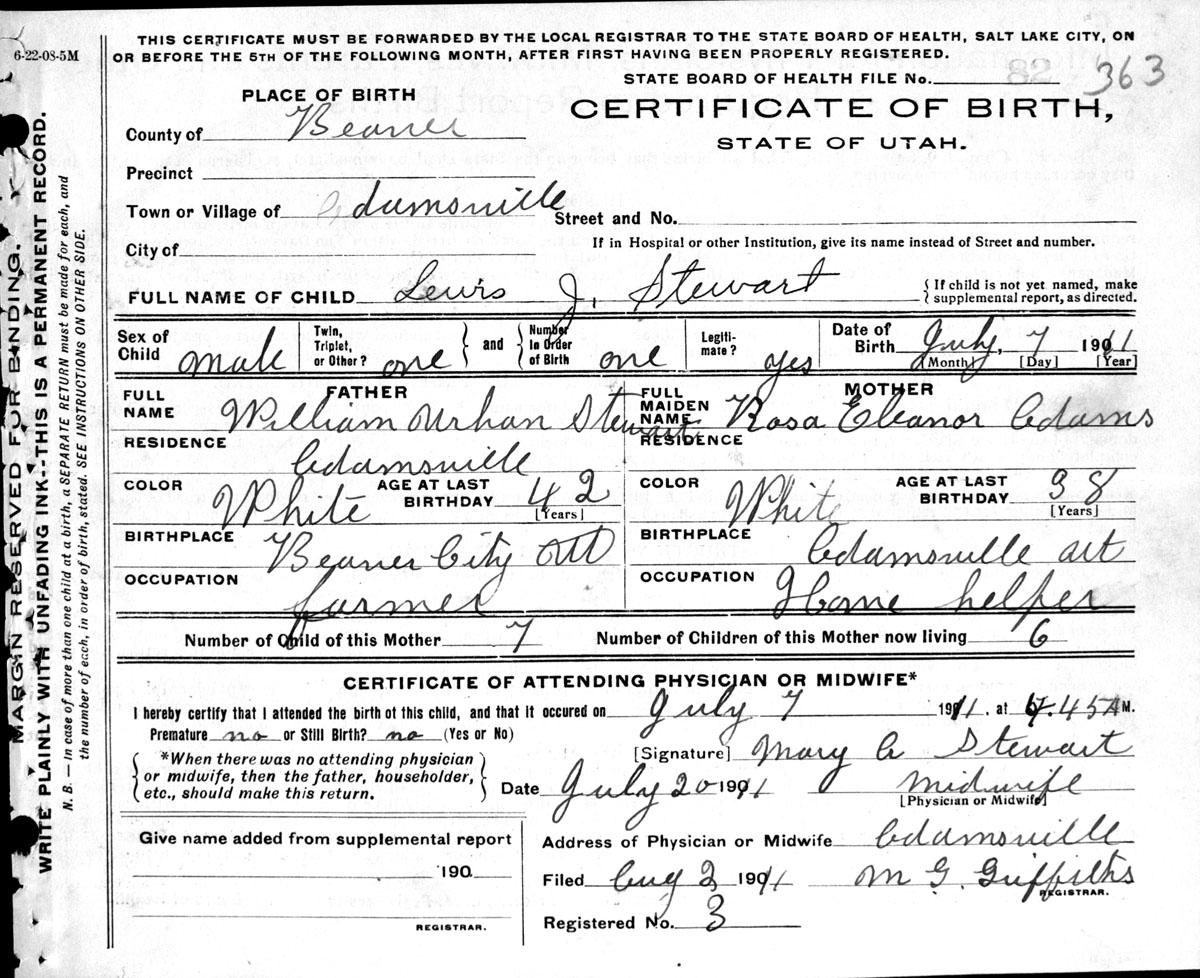 6-22-08-5M
THIS CERTIFICATE MUST BE FORWARDED BY THE LOCAL REGISTRAR TO THE STATE BOARD OF HEALTH, SALT LAKE CITY, ON
OR BEFORE THE 5TH OF THE FOLLOWING MONTH, AFTER FIRST HAVING BEEN PROPERLY REGISTERED.
STATE BOARD OF HEALTH FILE No. 82 363
PLACE OF BIRTH
CERTIFICATE OF BIRTH,
STATE OF UTAH.
County of Beaver
Precinct
Town or Village of Adamsville Street and No.
If in Hospital or other Institution, give its name instead of Street and number.
City of
FULL NAME OF CHILD Lewis J. Stewart { If child is not yet named, make supplemental report, as directed.
Sex of Child male Twin, Triplet, or Other? one } and { Number in Order of Birth one Legiti- mate? yes Date of Birth July, 7 1911
[Month] [Day] [Year]
FATHER MOTHER
FULL NAME William Urban Stewart FULL MAIDEN NAME Rosa Eleanor Adams
RESIDENCE Adamsville RESIDENCE
COLOR White AGE AT LAST BIRTHDAY 42 [Years] COLOR White AGE AT LAST BIRTHDAY 38 [Years]
BIRTHPLACE Beaver City Ut BIRTHPLACE Adamsville Ut
OCCUPATION farmer OCCUPATION Home helper
Number of Child of this Mother 7 Number of Children of this Mother now living 6
CERTIFICATE OF ATTENDING PHYSICIAN OR MIDWIFE*
I hereby certify that I attended the birth of this child, and that it occured on July 7 1911. at .45 A M.
Premature no or Still Birth? no (Yes or No)
[Signature] Mary A Stewart
{ *When there was no attending physician
or midwife, then the father, householder,
etc., should make this return. }
Date July 20 1911 Midwife
[Physician or Midwife]
Give name added from supplemental report
190
REGISTRAR.
Address of Physician or Midwife Adamsville
Filed Aug 2 1911 M G. Griffiths
REGISTRAR.
Registered No. 3
MARGIN RESERVED FOR BINDING.
WRITE PLAINLY WITH UNFADING INK--THIS IS A PERMANENT RECORD.
N. B. — In case of more than one child at a birth, a SEPARATE RETURN must be made for each, and
the number of each, in order of birth, stated. SEE INSTRUCTIONS ON OTHER SIDE.